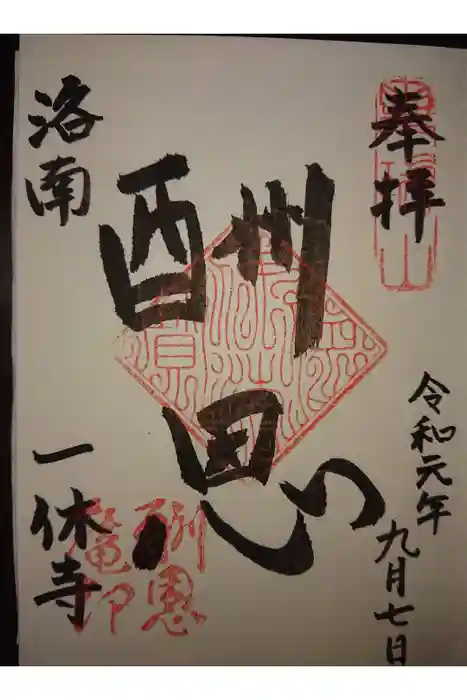 奉拝
令和元年
九月七日
酬恩
洛南
一休寺
酬恩
庵印